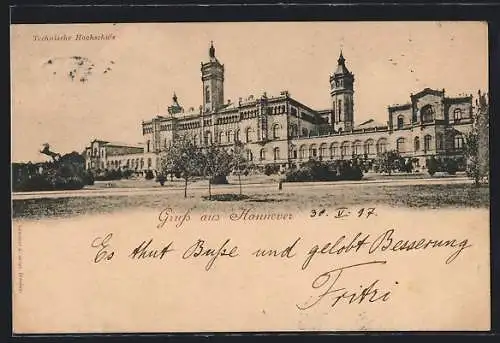 Technische Hochschule
Gruß aus Hannover 30. V. 97.
Es thut Buße und gelobt Besserung
Fritzi